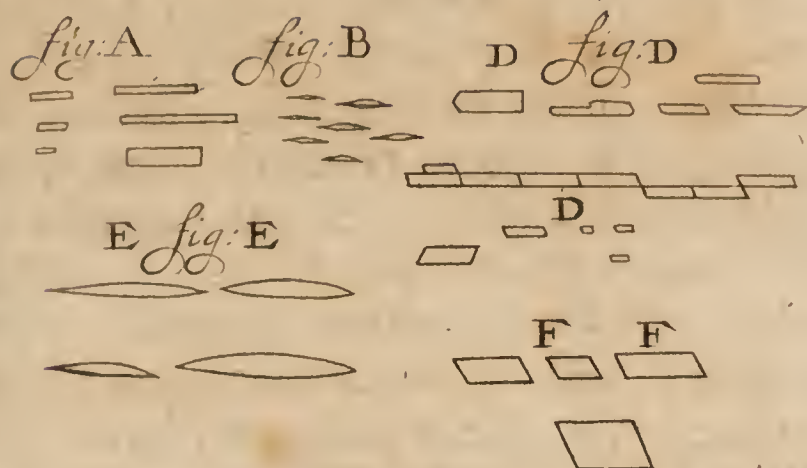 fig: A
fig: B
D fig: D
D
E fig: E
F F